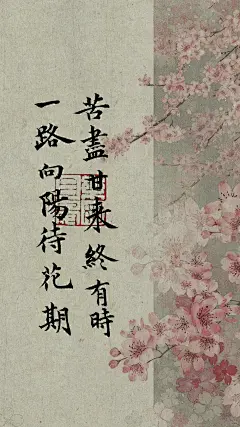 苦盡甘来終有時
一路向陽待花期